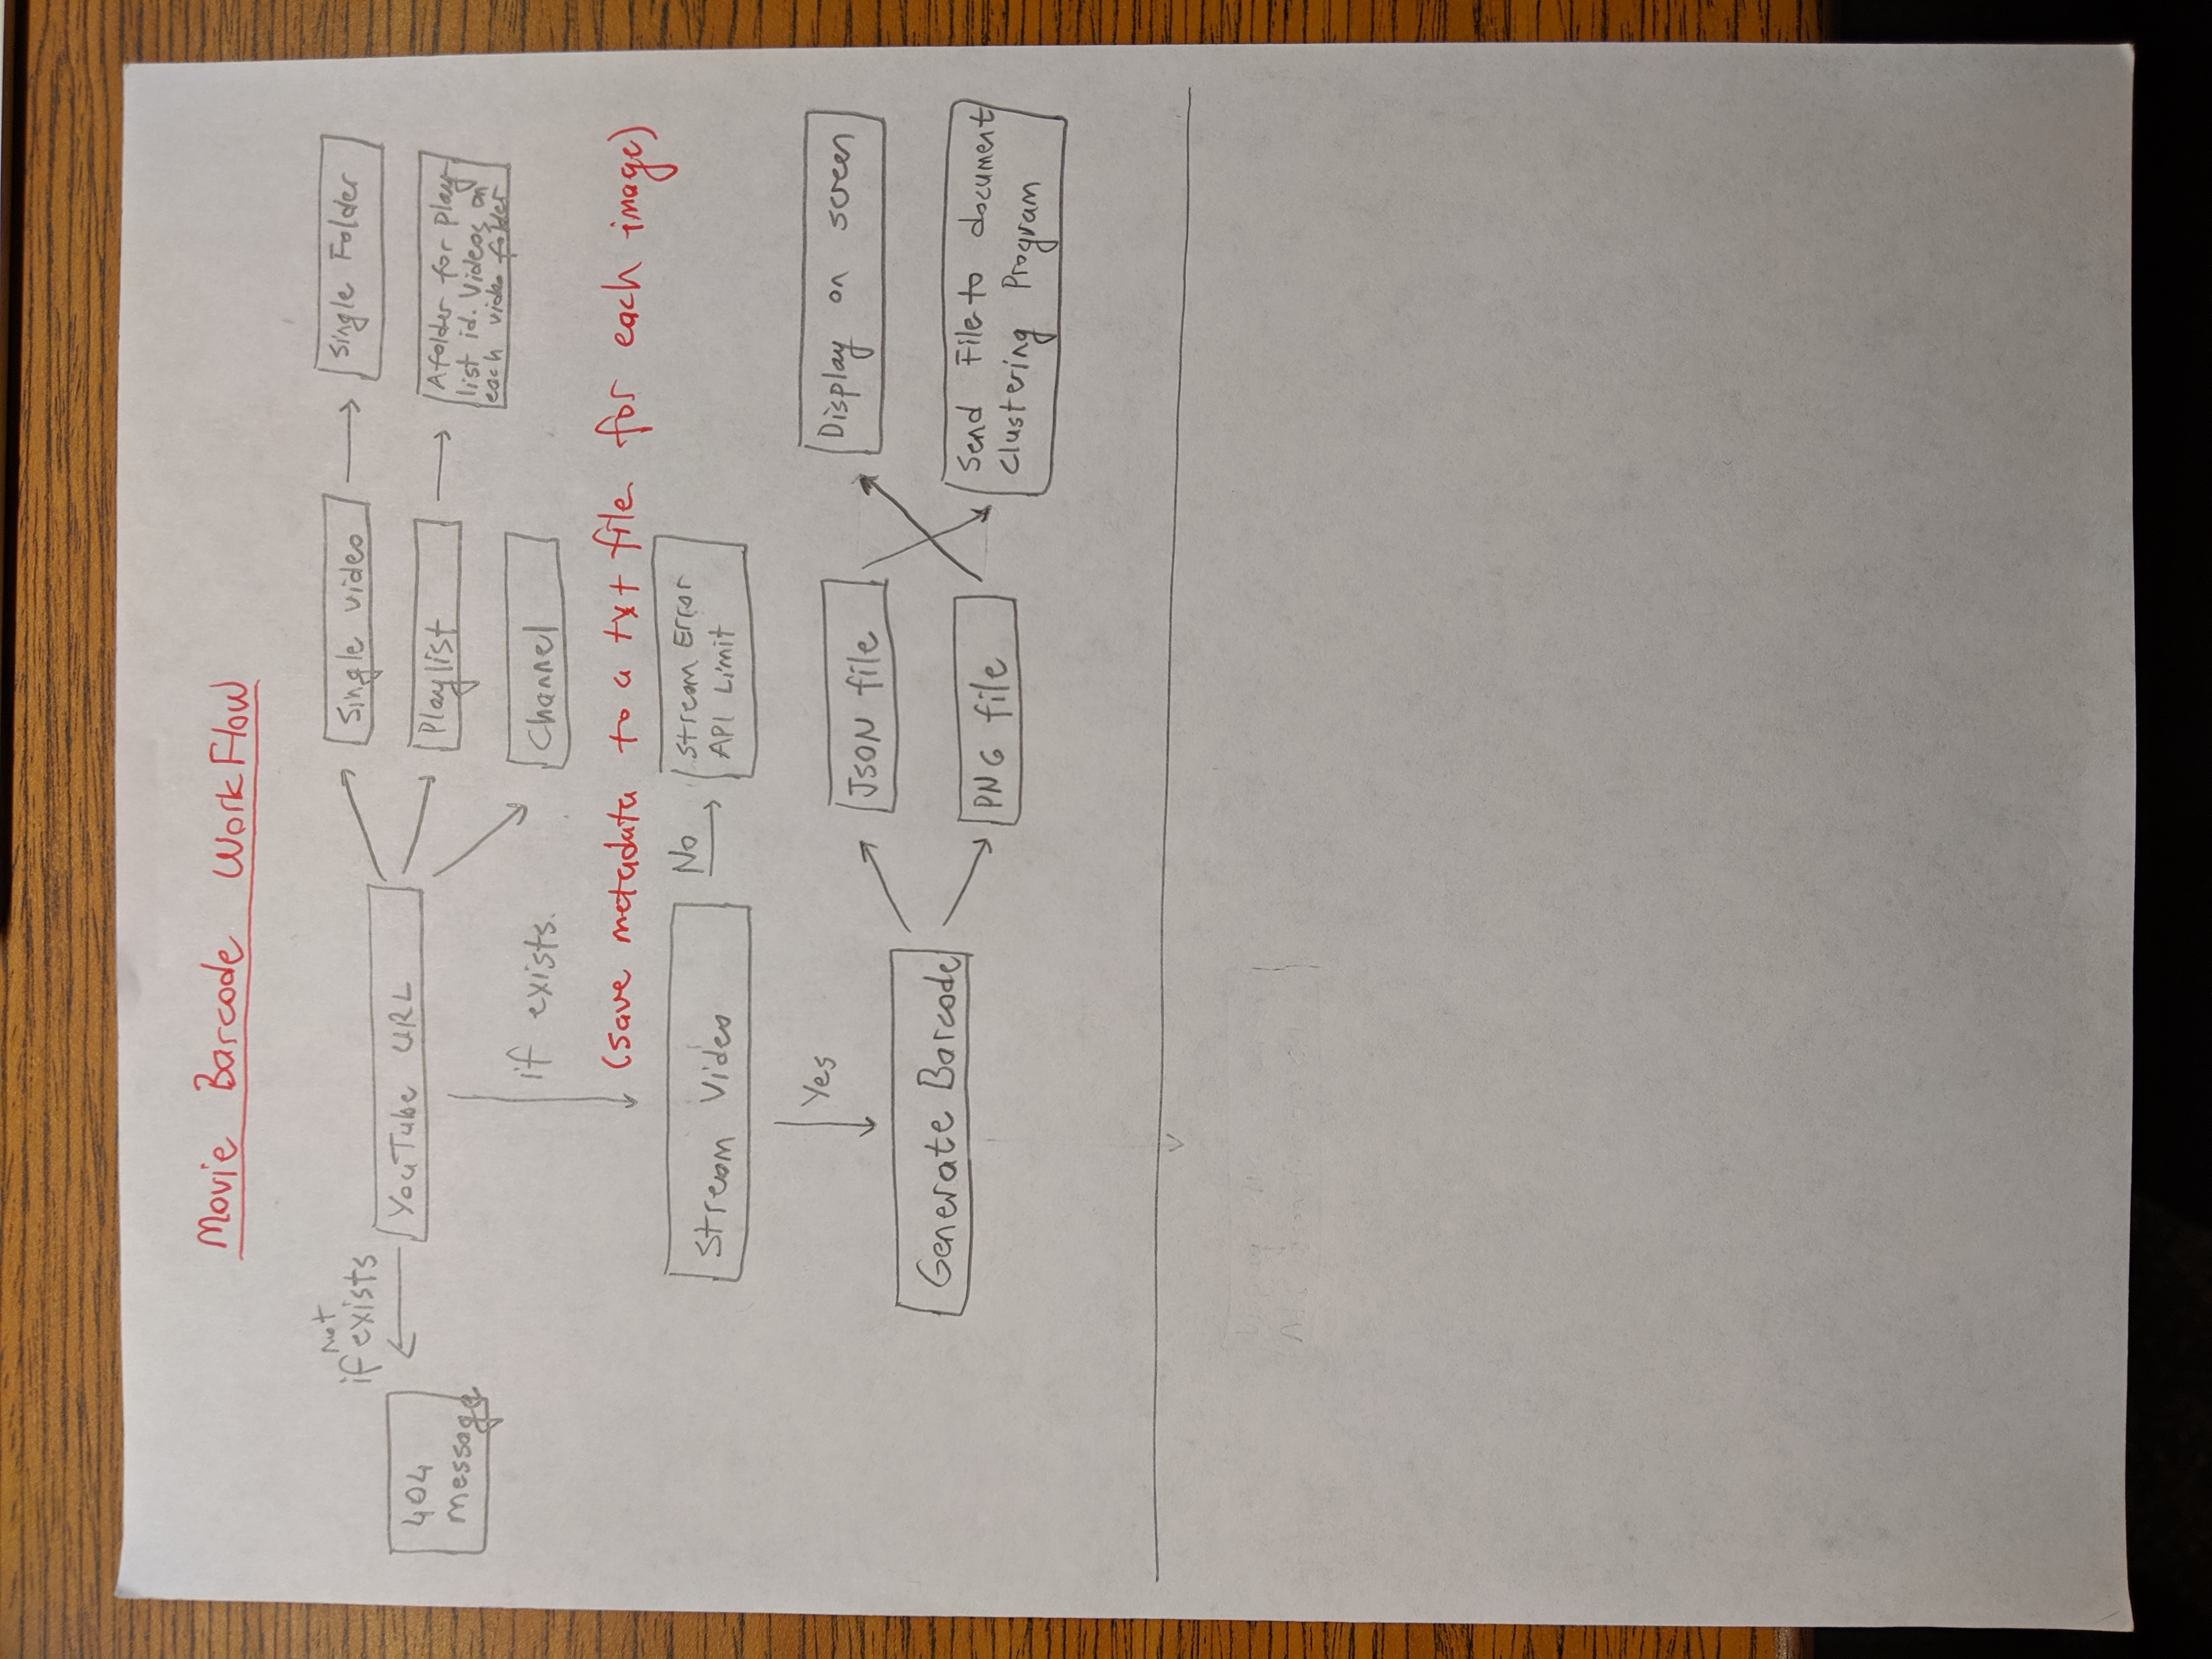 Movie Barcode WorkFlow
not
if exists
404
message
YouTube URL
Single video
Single Folder
Playlist
A folder for Play-
list id. Videos on
each video folder
Channel
if exists.
(save metadata to a txt file for each image)
Stream Video
No
Stream Error
API Limit
Yes
Generate Barcode
JSON file
PNG file
Display on screen
Send File to document
Clustering Program